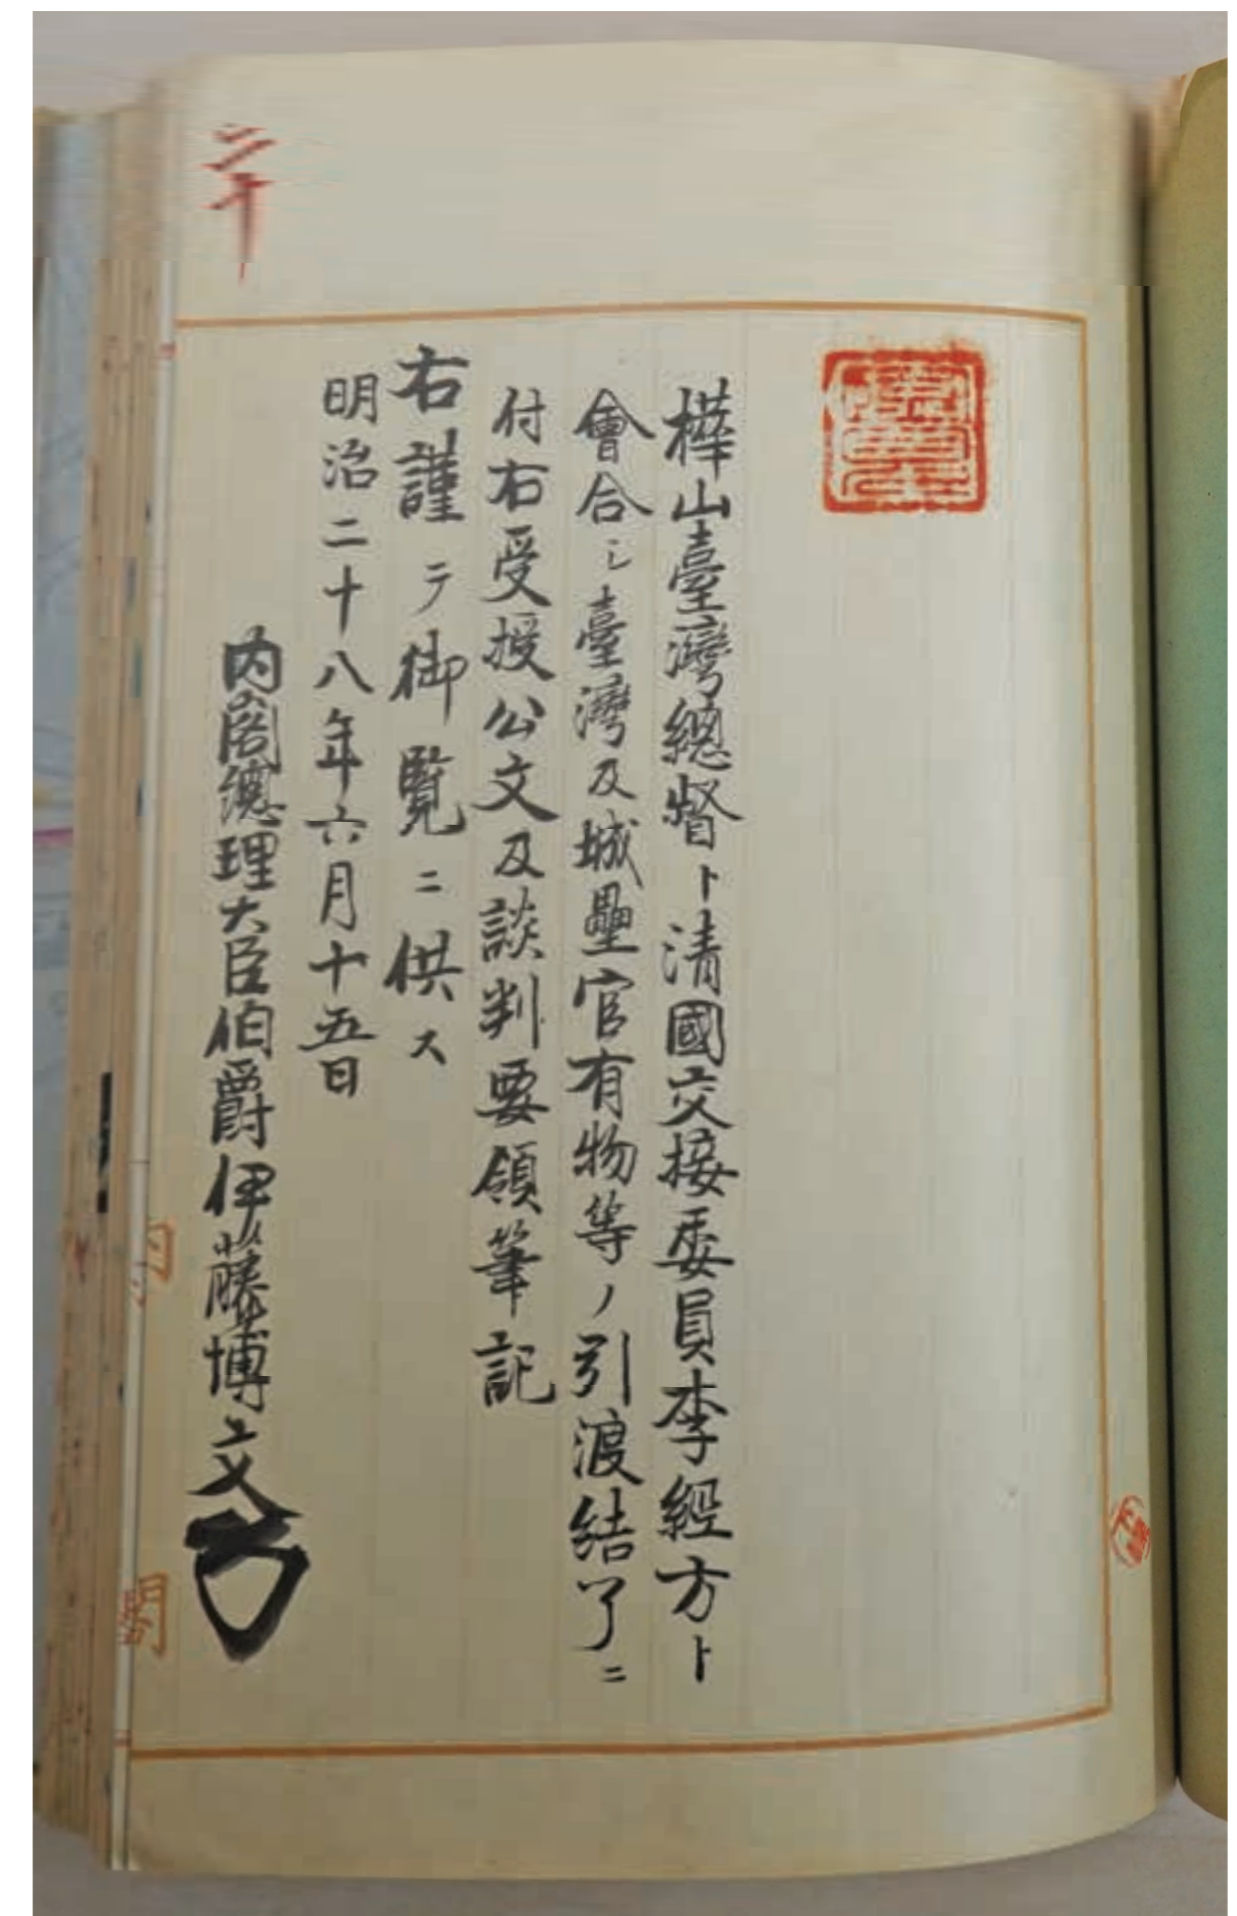 樺山臺灣總督ト清國交接委員李經方ト
會合シ臺灣及城壘官有物等ノ引渡結了ニ
付右受授公文及談判要領筆記
右謹テ御覧ニ供ス
明治二十八年六月十五日
内閣總理大臣伯爵伊藤博文
二十
内
閣